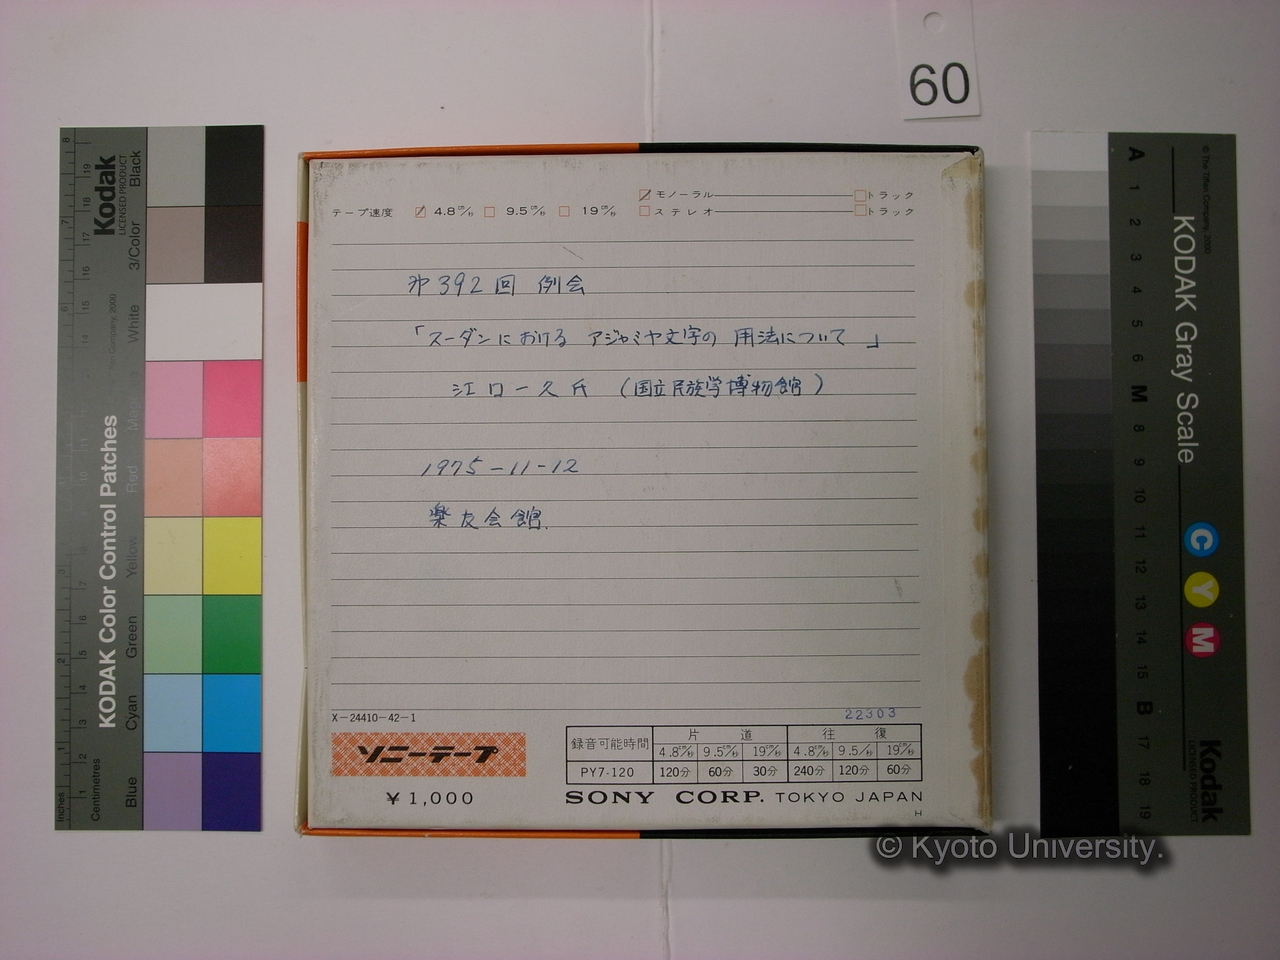 60
テープ速度 4.8㎝/秒 9.5㎝/秒 19㎝/秒
モノーラル トラック
ステレオ トラック
第392回 例会
「スーダンにおける アジャミヤ文字の 用法について」
江口一久氏 (国立民族学博物館)
1975-11-12
楽友会館.
X-24410-42-1
22303
ソニーテープ
¥1,000
録音可能時間 片道 往復
4.8㎝/秒 9.5㎝/秒 19㎝/秒 4.8㎝/秒 9.5/秒 19㎝/秒
PY7-120 120分 60分 30分 240分 120分 60分
SONY CORP. TOKYO JAPAN
H
Kodak
LICENSED PRODUCT
KODAK Color Control Patches
Inches
Centimetres
Blue Cyan Green Yellow Red White 3/Color Black
© The Tiffen Company, 2000
KODAK Gray Scale
C Y M
Kodak
LICENSED PRODUCT
A 1 2 3 4 5 6 M 8 9 10 11 12 13 14 15 B 17 18 19
© Kyoto University.